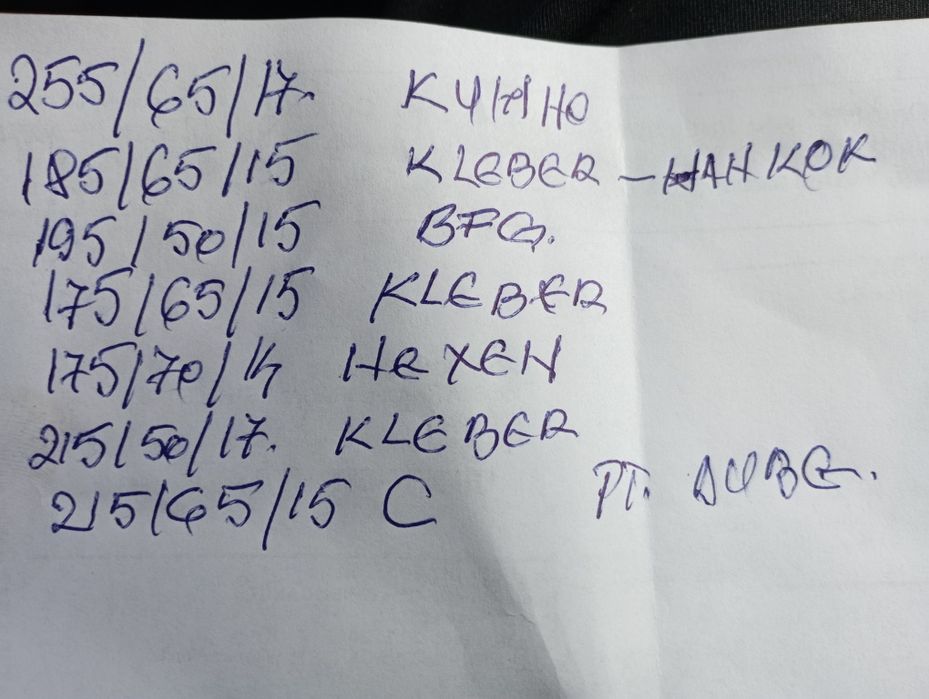 255/65/17. KYMHO
185/65/15 KLEBER - HANKOK
195/50/15 BFG.
175/65/15 KLEBER
175/70/14 HEXEN
215/50/17. KLEBER
215/65/15 C PT.